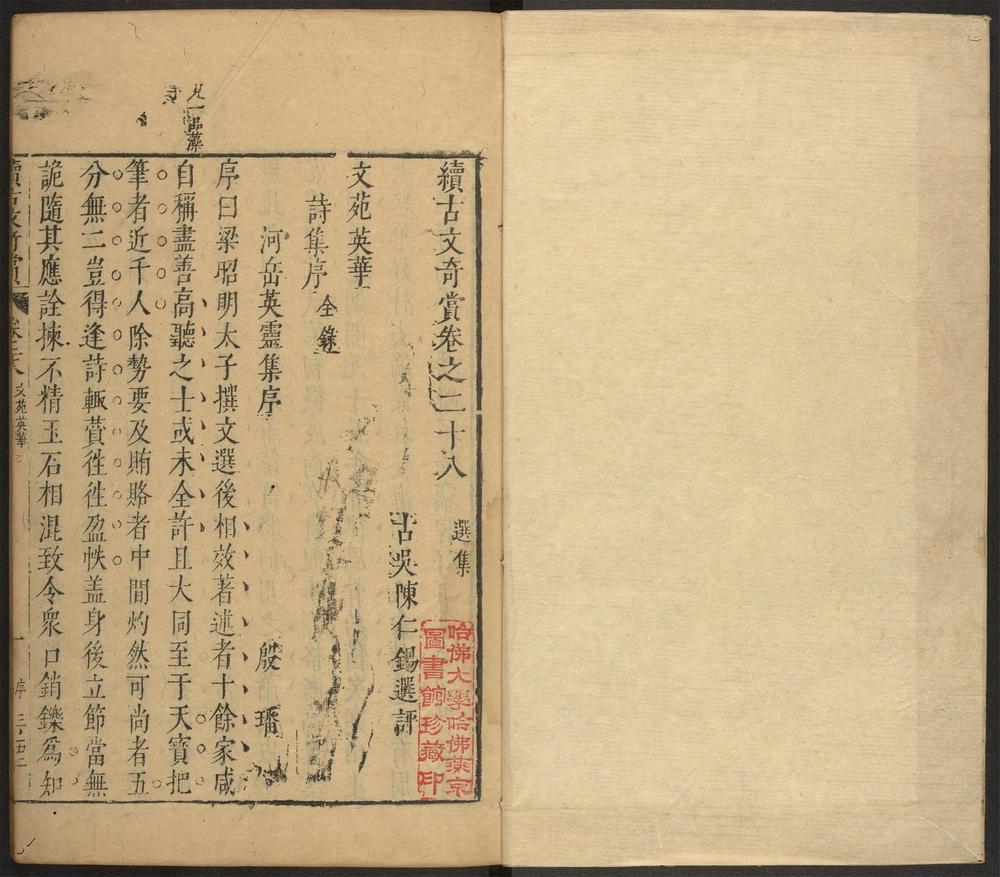 續古文奇賞卷之二十八
選集
古吳陳仁錫選評
文苑英華
詩集序 全錄
河岳英靈集序
殷璠
序曰梁昭明太子撰文選後相效著述者十餘家咸
自稱盡善高聽之士或未全許且大同至于天寶把
筆者近千人除勢要及賄賂者中間灼然可尚者五
分無二豈得逢詩輒賛徃徃盈帙盖身後立節當無
詭隨其應詮揀不精玉石相混致令衆口銷鑠爲知
文苑英華
一
序
哈佛大學哈佛燕京
圖書館珍藏印